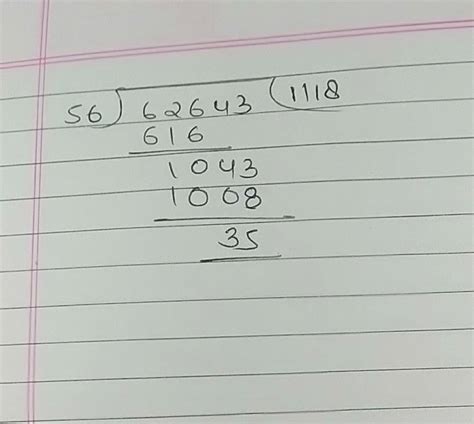 56) 62643 (1118
616
1043
1008
35